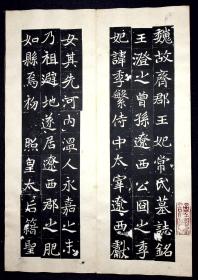 魏故齊郡王妃常氏墓誌銘
王澄之曾孫遼西公囘之季
妃諱季繁侍中太宰遼西獻
女其先河内溫人永嘉之末
乃祖避地遂居遼西郡之肥
如縣焉
照皇太后籍聖